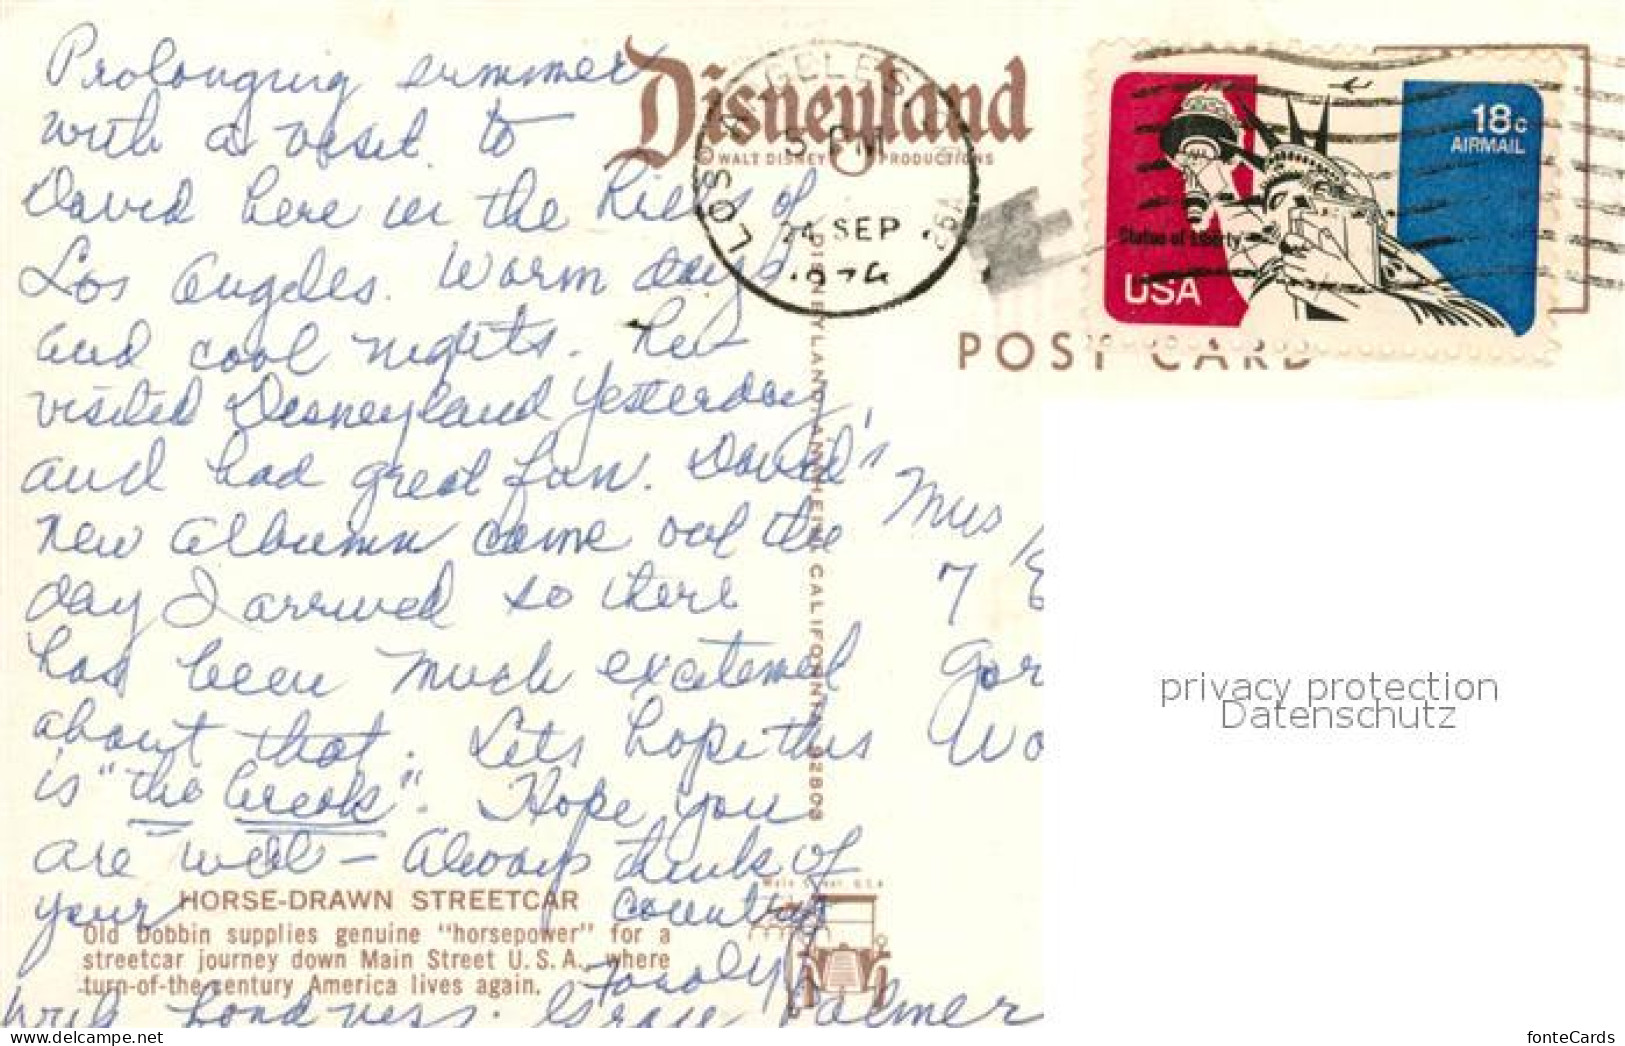 Prolonging summer
with a visit to
David here in the hills of
Los Angeles. Warm days
and cool nights. We
visited Disneyland yesterday
and had great fun. David's
new albumn came out the
day I arrived so there
has been much excitement
about that. Lets hope this
is "the break". Hope you
are well – Always think of
your country
fondly
with fondness. Grace Palmer
Disneyland
© WALT DISNEY PRODUCTIONS
LOS ANGELES, CA
5 PM
24 SEP
1974
USA
18c
AIRMAIL
Statue of Liberty
USA
POST CARD
DISNEYLAND, ANAHEIM, CALIFORNIA 92803
Mrs
7 E
Gor
Wo
HORSE-DRAWN STREETCAR
Old Dobbin supplies genuine "horsepower" for a
streetcar journey down Main Street U.S.A., where
turn-of-the-century America lives again.
Main Street U.S.A.
privacy protection
Datenschutz
fonteCards